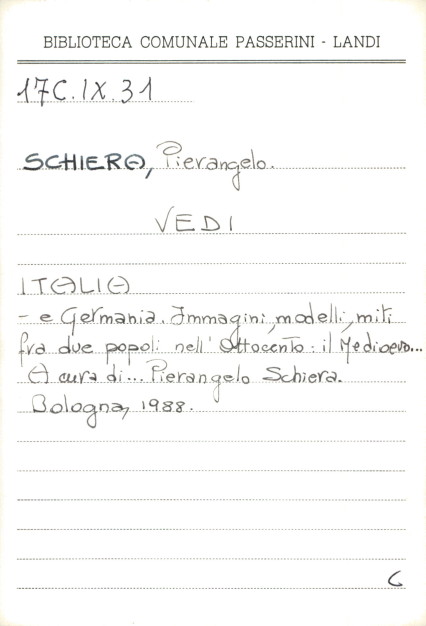 BIBLIOTECA COMUNALE PASSERINI - LANDI
17C.IX.31
SCHIERA, Pierangelo.
VEDI
ITALIA
- e Germania. Immagini, modelli, miti
fra due popoli nell'Ottocento: il Medioevo...
A cura di... Pierangelo Schiera.
Bologna, 1988.
6